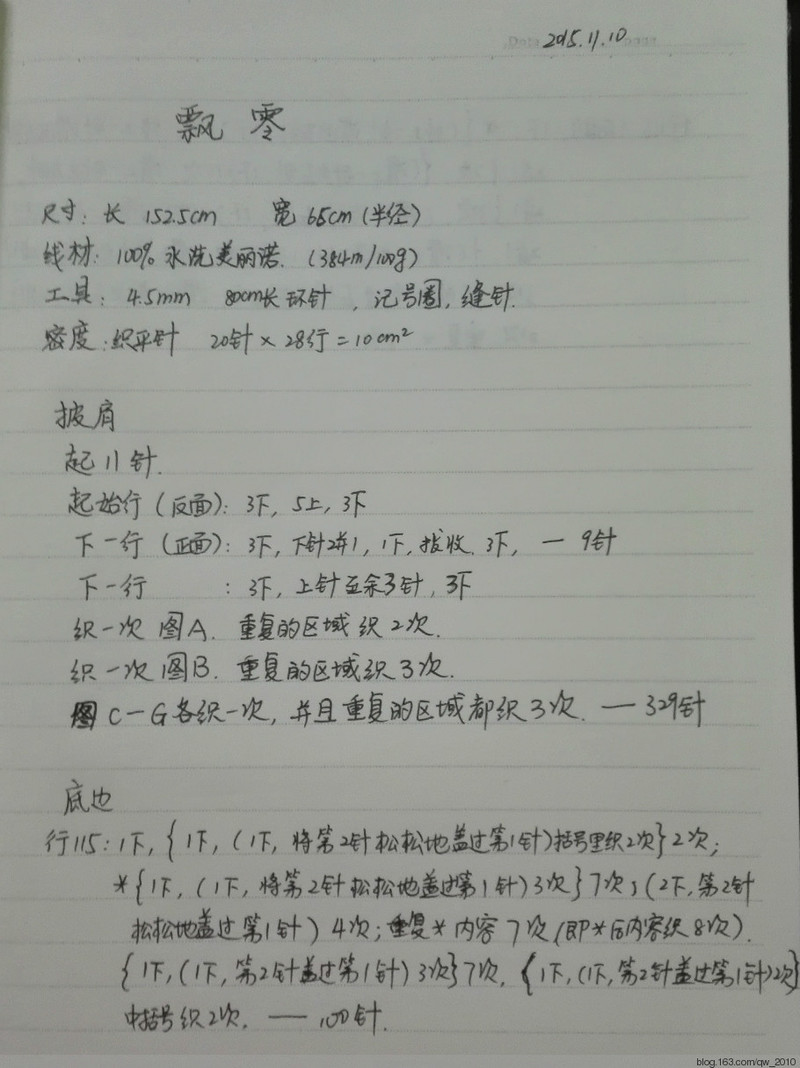 2015.11.10
飘零
尺寸: 长 152.5cm 宽 65cm (半径)
线材: 100% 水洗美丽诺. (384m/100g)
工具: 4.5mm 80cm长环针, 记号圈, 缝针.
密度: 织平针 20针×28行=10cm²
披肩
起11针.
起始行(反面): 3下, 5上, 3下
下一行(正面): 3下, 下针2并1, 1下, 拔收, 3下, — 9针
下一行 : 3下, 上针至余3针, 3下
织一次图A. 重复的区域织2次.
织一次图B. 重复的区域织3次.
图C—G各织一次, 并且重复的区域都织3次. — 329针
底边
行115: 1下, {1下, (1下, 将第2针松松地盖过第1针)括号里织2次}2次;
*{1下, (1下, 将第2针松松地盖过第1针)3次}7次; (2下, 第2针
松松地盖过第1针) 4次; 重复*内容7次(即*后内容织8次).
{1下, (1下, 第2针盖过第1针) 3次}7次. {1下, (1下, 第2针盖过第1针)2次}
中括号织2次. — 100针.
blog.163.com/qw_2010